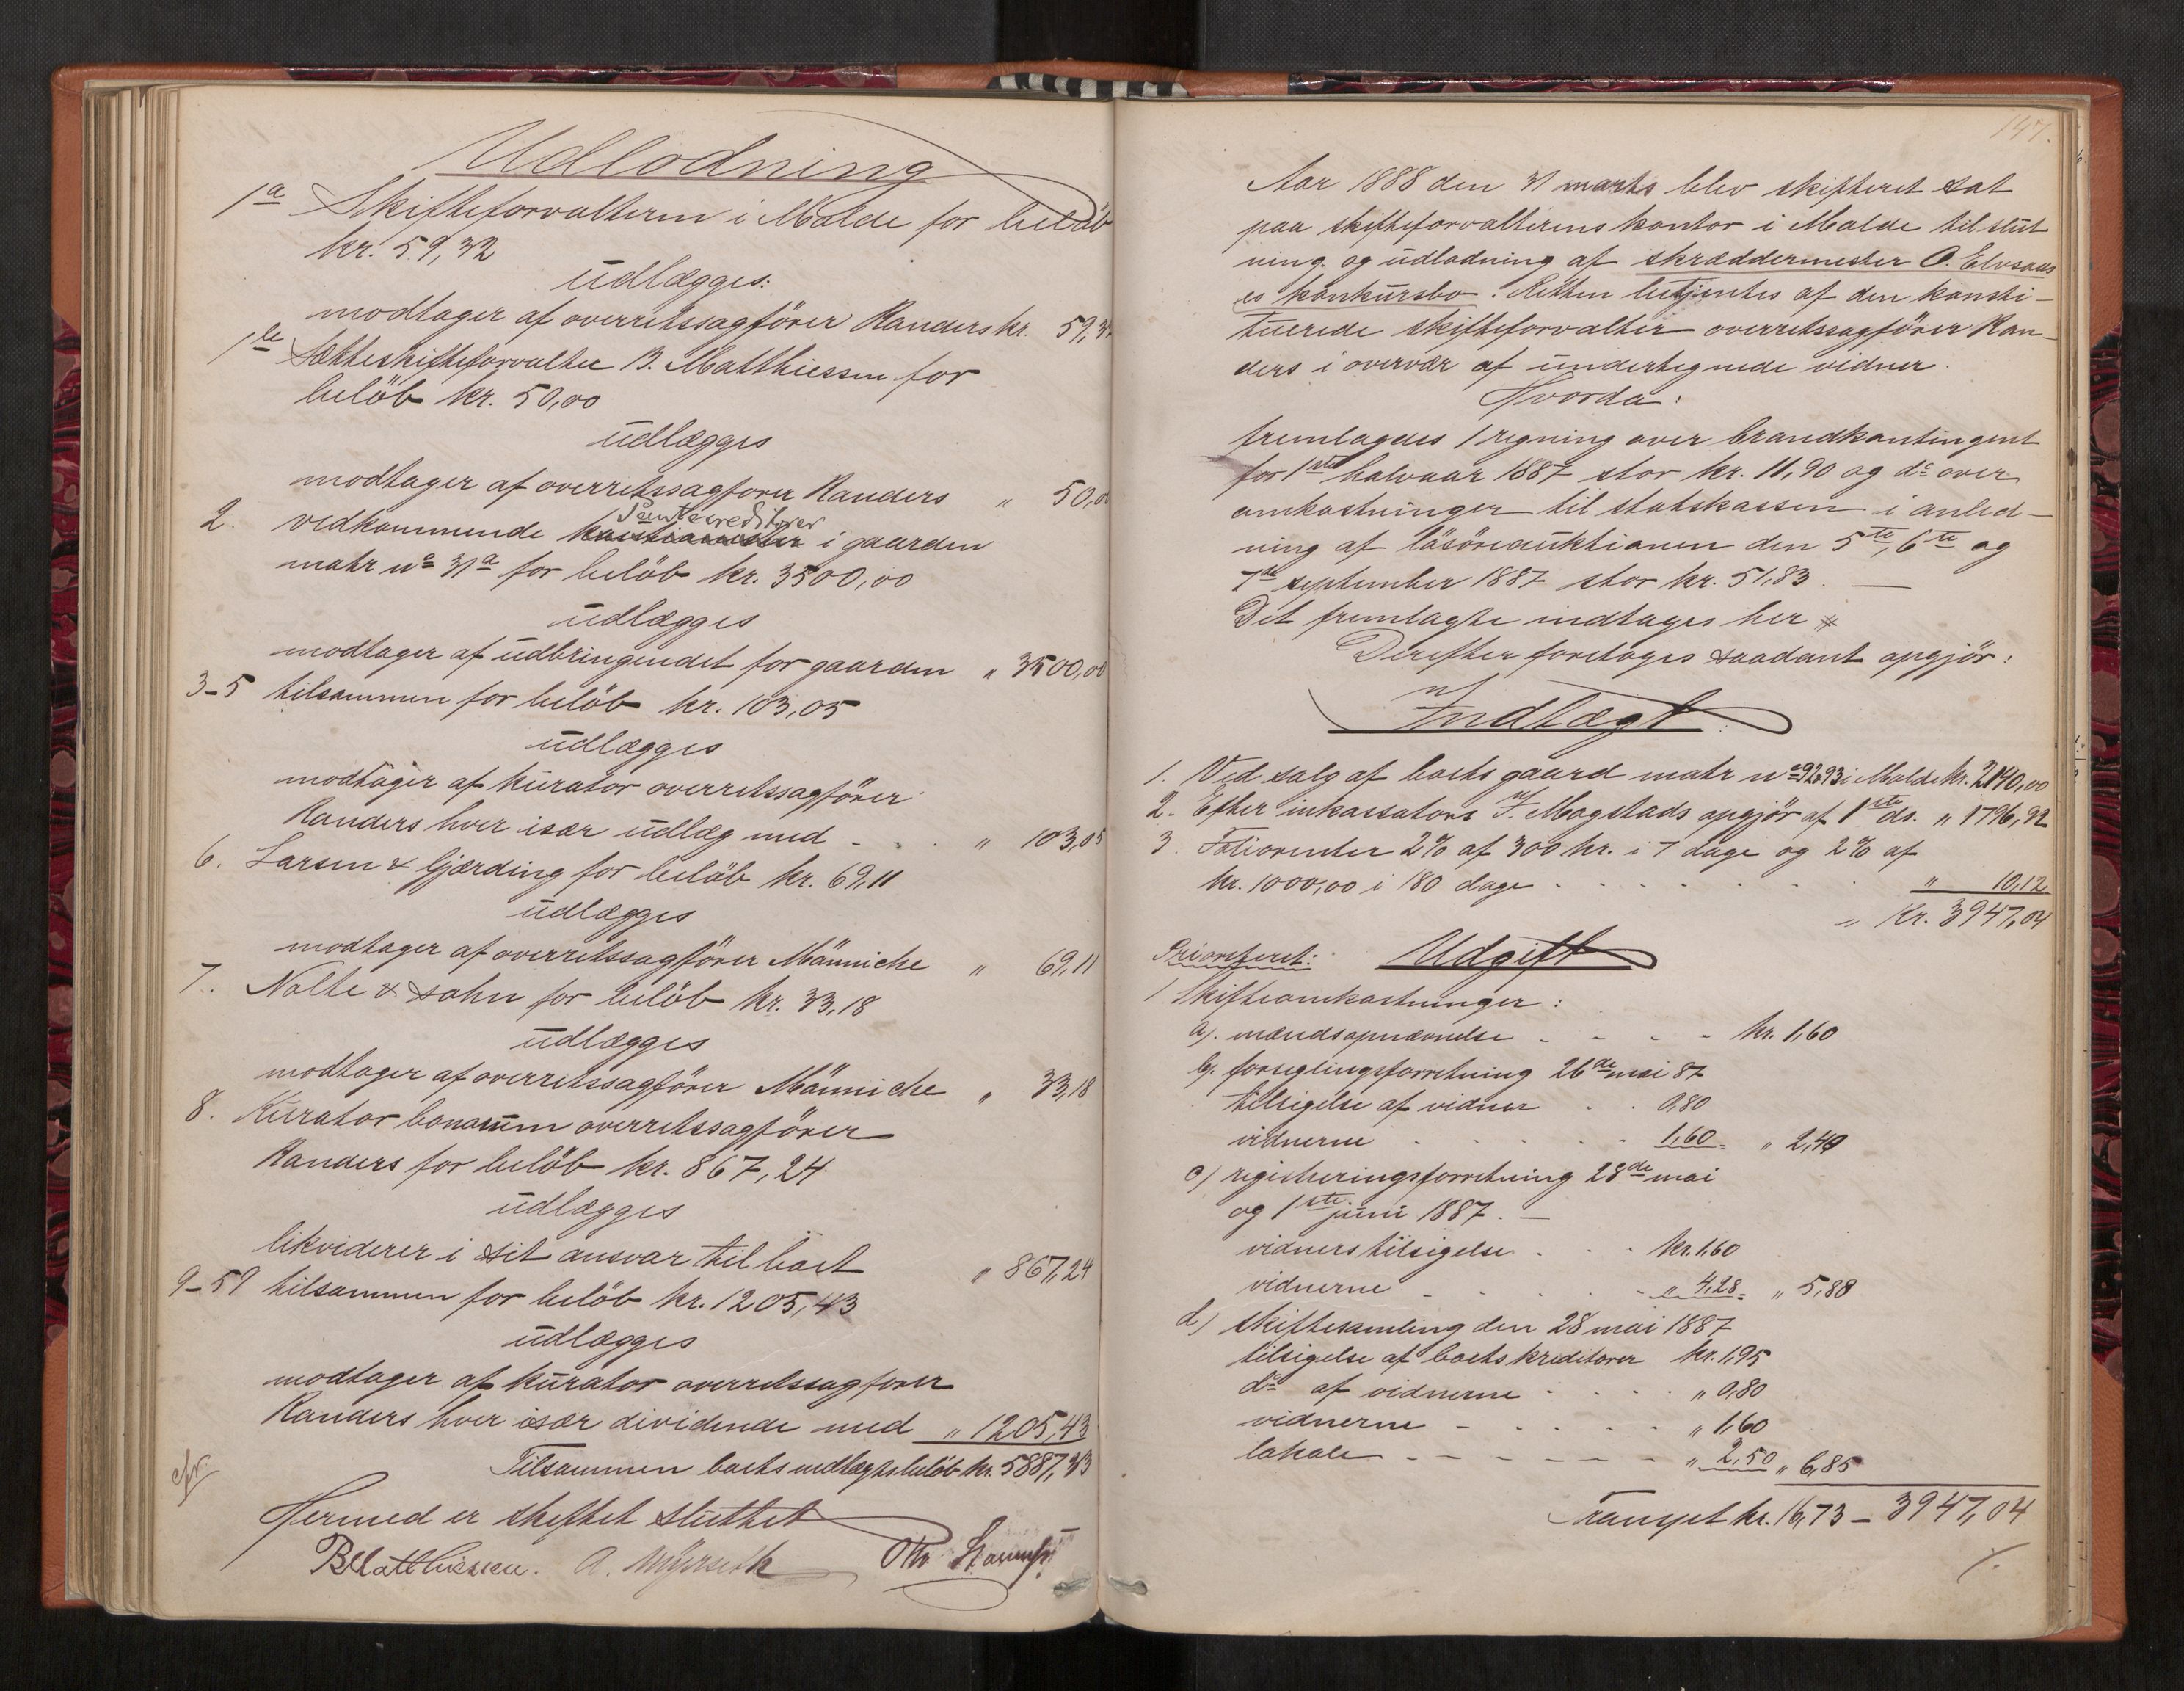 Udlodning
1a Skifteforvalteren i Molde for beløb
kr. 59,32
udlægges:
modtager af overretssagfører Randers kr. 59,32
1b Sætteskifteforvalter B. Matthiessen for
beløb kr. 50,00
udlægges
modtager af overretssagfører Randers " 50,00
Pantecreditorer
2. vedkommende i gaarden
matr no 31a for beløb kr. 3500,00
udlægges
modtager af udbringendet for gaarden " 3500,00
3-5 tilsammen for beløb kr. 103,05
udlægges
modtager af kurator overretssagfører
Randers hver især udlæg med . . . " 103,05
6. Larsen & Gjærding for beløb kr. 69,11
udlægges
modtager af overretssagfører Männiche " 69,11
7. Nolte & sohn for beløb kr. 33,18
udlægges
modtager af overretssagfører Männiche " 33,18
8. Kurator bonorum overretssagfører
Randers for beløb kr. 867,24
udlægges
likviderer i sit ansvar til boet " 867,24
9-59 tilsammen for beløb kr. 1205,43
udlægges
modtager af kurator overretssagfører
Randers hver især dividende med " 1205,43
Tilsammen boets indtægtsbeløb kr. 5887,33
cfr
Hermed er skiftet sluttet
BMatthiessen. A. Myrseth Otto
197.
Aar 1888 den 31 marts blev skifteret sat
paa skifteforvalterens kontor i Molde til slut
ning og udlodning af skræddermester O. Elvsaas
es konkursbo. Retten betjentes af den konsti-
tuerede skifteforvalter overretssagfører Ran-
ders i overvær af undertegnede vidner.
Hvorda:
fremlagdes 1 regning over brandkontingent
for 1ste halvaar 1887 stor kr. 11,90 og do over
omkostninger til statskassen i anled-
ning af løsøreauktionen den 5te, 6te og
7de september 1887 stor kr. 51,83. —
Det fremlagte indtages her #
Derefter foretoges saadant opgjør:
Indtægt:
1. Ved salg af boets gaard matr no 92 & 93 i Molde kr. 2140,00
2. Efter inkassators J. Magstads opgjør af 1ste ds. " 1796,92
3. Foliorenter 2% af 300 kr. i 7 dage og 2% af
kr. 1000,00 i 180 dage . . . . . . " 10,12
Kr. 3947,04
Prioriteret: Udgift
1 Skifteomkostninger:
a). mændsopnævnelse - - - - kr. 1,60
b). forseglingsforretning 26de mai 87
tilsigelse af vidner . . 0,80
vidnerne . . . . . 1,60 = " 2,40
c) registreringsforretning 28de mai
og 1ste juni 1887. —
vidners tilsigelse . . . kr. 1,60
vidnerne - . . . - " 4,28 = " 5,88
d) skiftesamling den 28 mai 1887
tilsigelse af boets kreditorer kr. 1,95
do af vidnerne . . . . " 0,80
vidnerne - . . . . " 1,60
lokale - - - - - - " 2,50 " 6,85
Transpt kr. 16,73 - 3947,04
./.